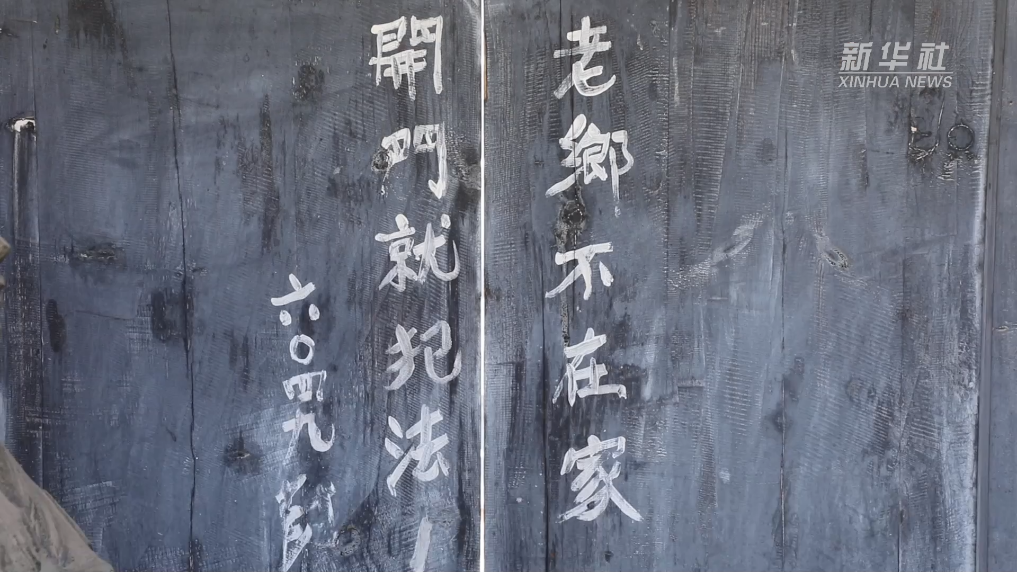 老鄉不在家
開門就犯法
六〇四九
新华社
XINHUA NEWS